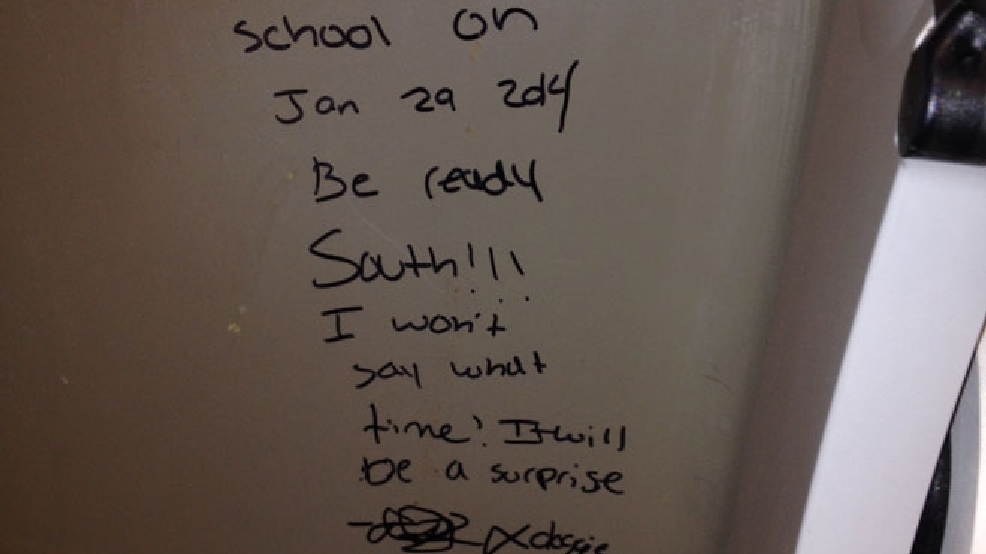 school on
Jan 29 2014
Be ready
South!!!
I won't
say what
time! It will
be a surprise